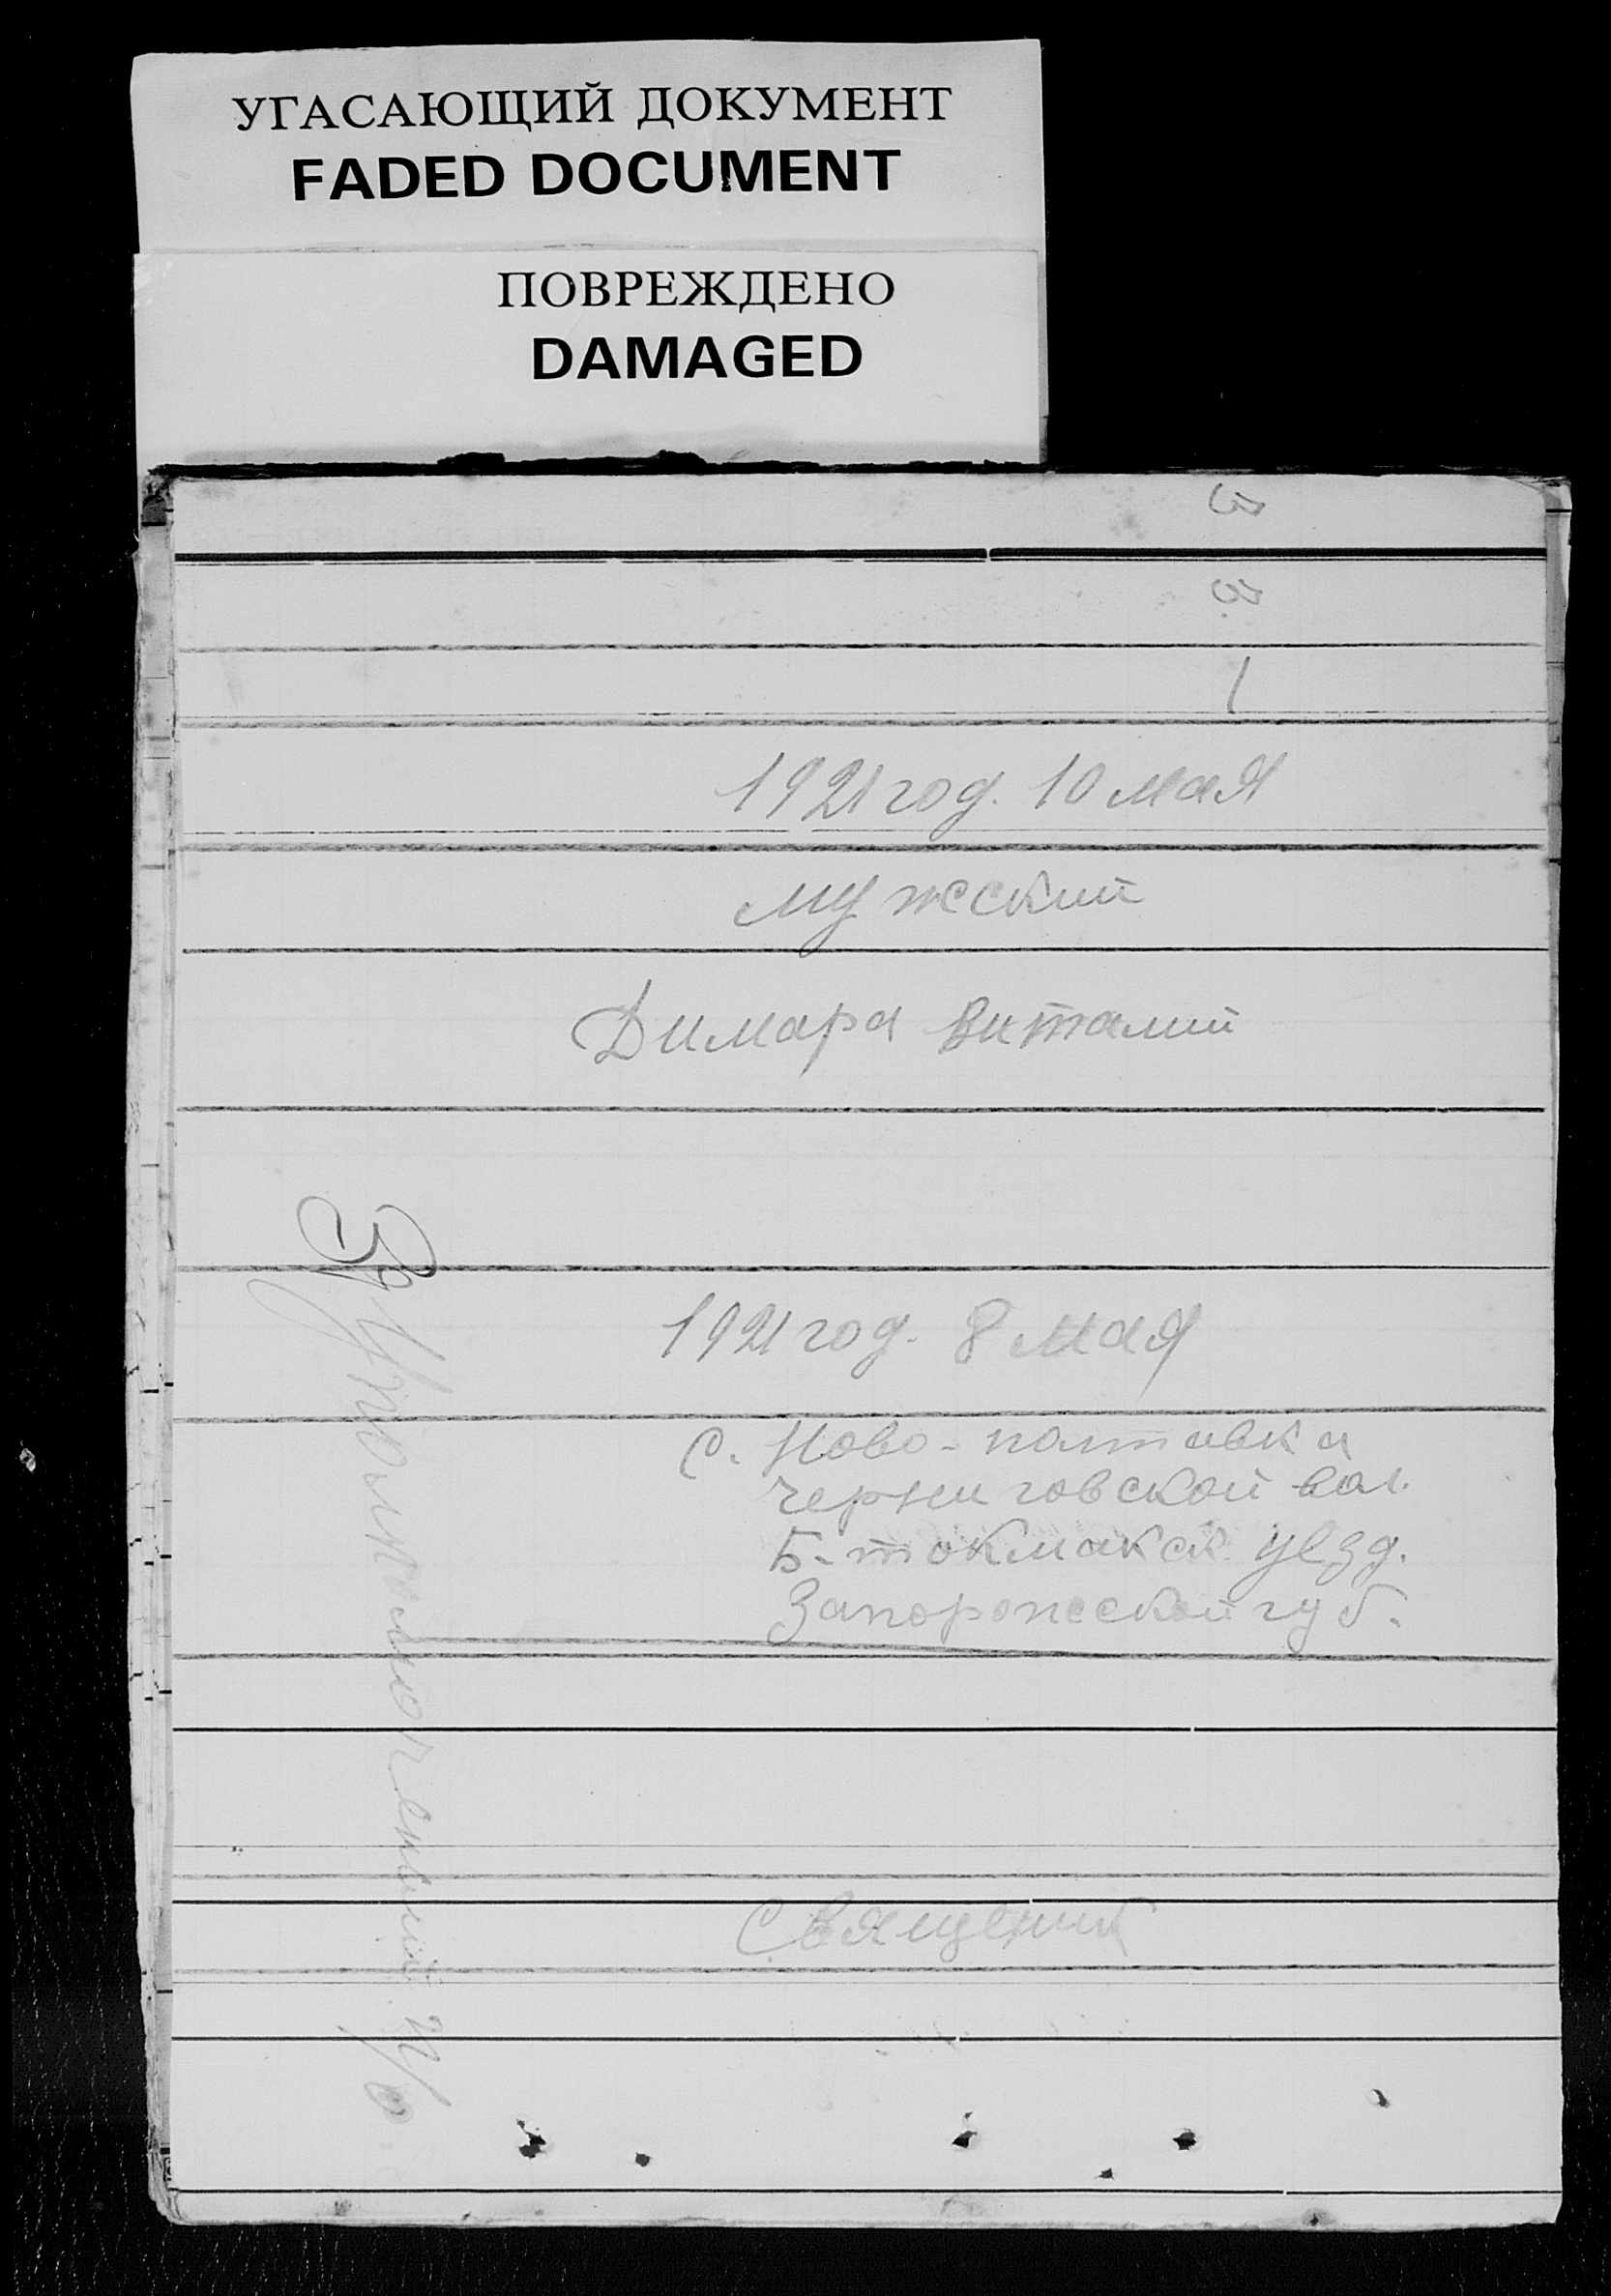 УГАСАЮЩИЙ ДОКУМЕНТ
FADED DOCUMENT
ПОВРЕЖДЕНО
DAMAGED
3
3.
1
1921 год. 10 мая
мужский
Димара Виталий
1921 год. 8 мая
с. Ново-полтавка
Черниговской вол.
Б-токмакск. уезд.
Запорожской губ.
Священик
Уполномоченный